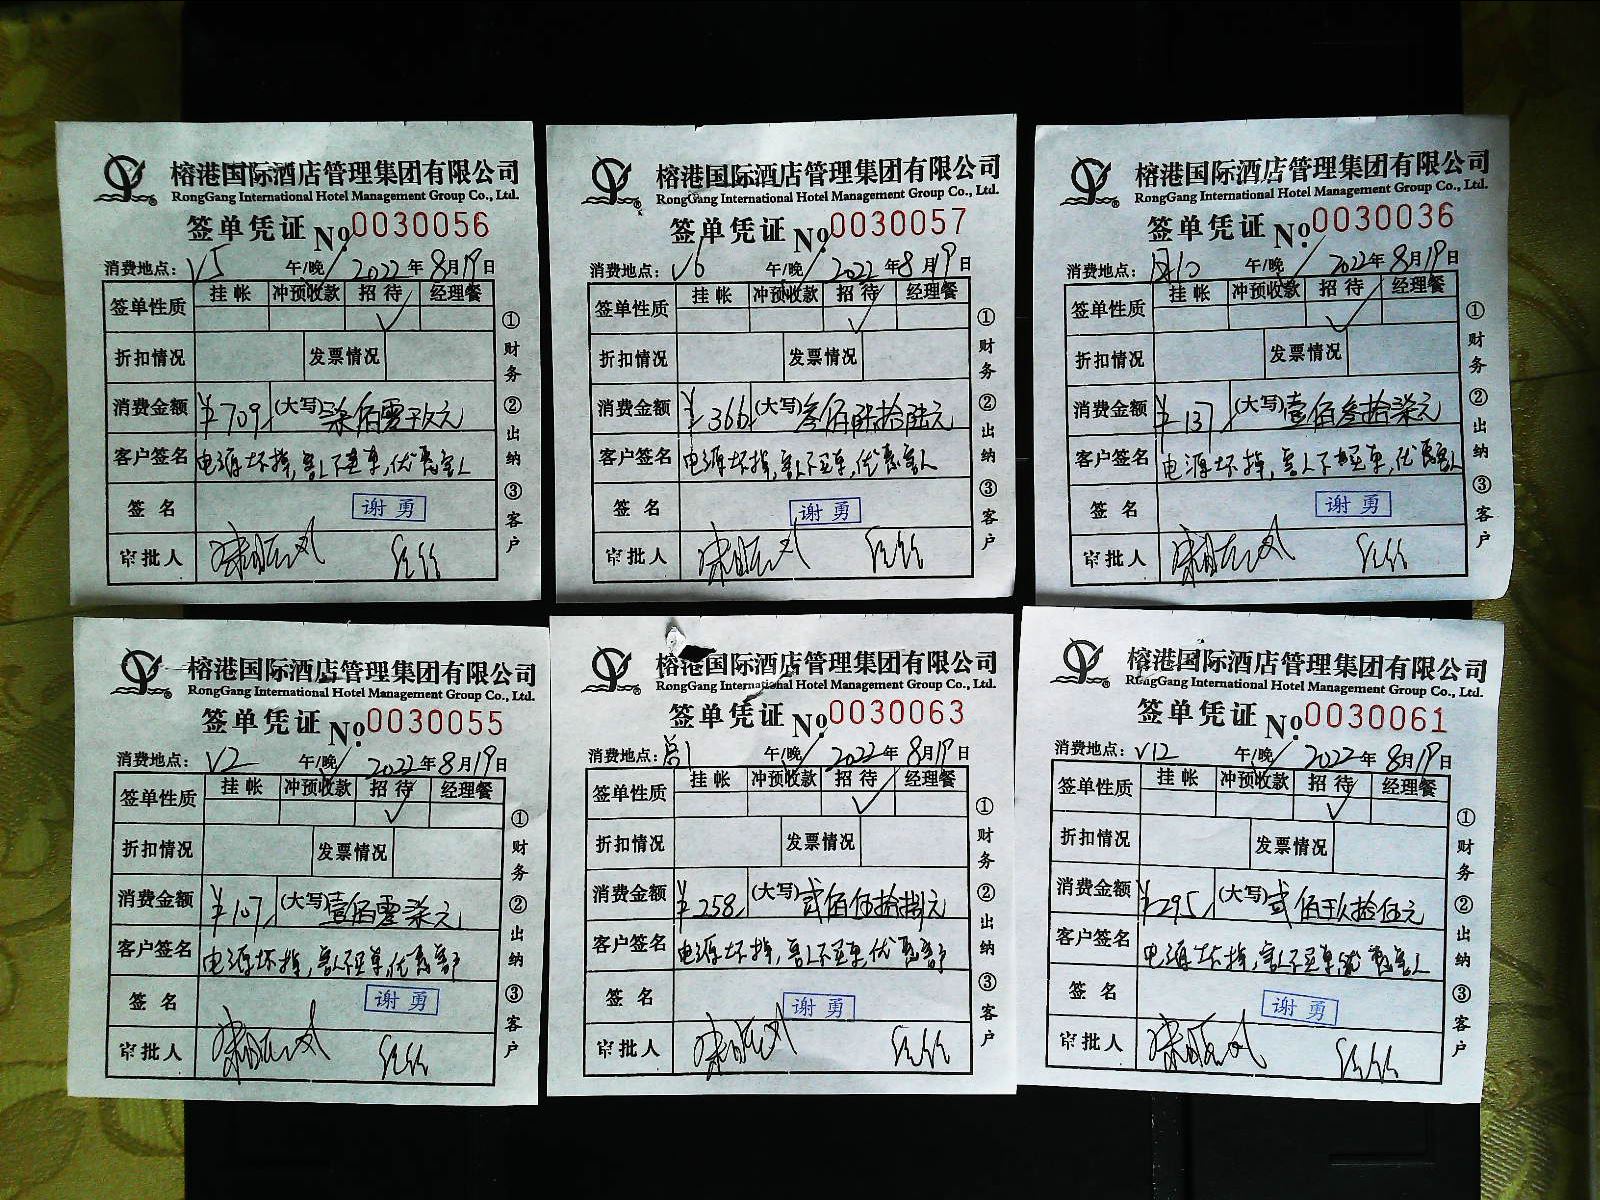 榕港国际酒店管理集团有限公司
RongGang International Hotel Management Group Co., Ltd.
签单凭证 No. 0030056
消费地点: V5 午/晚 2022年8月19日
签单性质 挂帐 冲预收款 招待 经理餐
折扣情况 发票情况
消费金额 ¥709 (大写)柒佰零玖元
客户签名 电源坏掉,客人不买单,优惠客人
签名 谢勇
审批人
①财务 ②出纳 ③客户
榕港国际酒店管理集团有限公司
RongGang International Hotel Management Group Co., Ltd.
签单凭证 No. 0030057
消费地点: V6 午/晚 2022年8月19日
签单性质 挂帐 冲预收款 招待 经理餐
折扣情况 发票情况
消费金额 ¥366 (大写)叁佰陆拾陆元
客户签名 电源坏掉,客人不买单,优惠客人
签名 谢勇
审批人
①财务 ②出纳 ③客户
榕港国际酒店管理集团有限公司
RongGang International Hotel Management Group Co., Ltd.
签单凭证 No. 0030036
消费地点: 午/晚 2022年8月19日
签单性质 挂帐 冲预收款 招待 经理餐
折扣情况 发票情况
消费金额 ¥137 (大写)壹佰叁拾柒元
客户签名 电源坏掉,客人不买单,优惠客人
签名 谢勇
审批人
①财务 ②出纳 ③客户
榕港国际酒店管理集团有限公司
RongGang International Hotel Management Group Co., Ltd.
签单凭证 No. 0030055
消费地点: V2 午/晚 2022年8月19日
签单性质 挂帐 冲预收款 招待 经理餐
折扣情况 发票情况
消费金额 ¥107 (大写)壹佰零柒元
客户签名 电源坏掉,客人不买单,优惠客户
签名 谢勇
审批人
①财务 ②出纳 ③客户
榕港国际酒店管理集团有限公司
RongGang International Hotel Management Group Co., Ltd.
签单凭证 No. 0030063
消费地点: 午/晚 2022年8月19日
签单性质 挂帐 冲预收款 招待 经理餐
折扣情况 发票情况
消费金额 ¥258 (大写)贰佰伍拾捌元
客户签名 电源坏掉,客人不买单,优惠客户
签名 谢勇
审批人
①财务 ②出纳 ③客户
榕港国际酒店管理集团有限公司
RongGang International Hotel Management Group Co., Ltd.
签单凭证 No. 0030061
消费地点: V12 午/晚 2022年8月19日
签单性质 挂帐 冲预收款 招待 经理餐
折扣情况 发票情况
消费金额 ¥295 (大写)贰佰玖拾伍元
客户签名 电源坏掉,客人不买单,优惠客人
签名 谢勇
审批人
①财务 ②出纳 ③客户